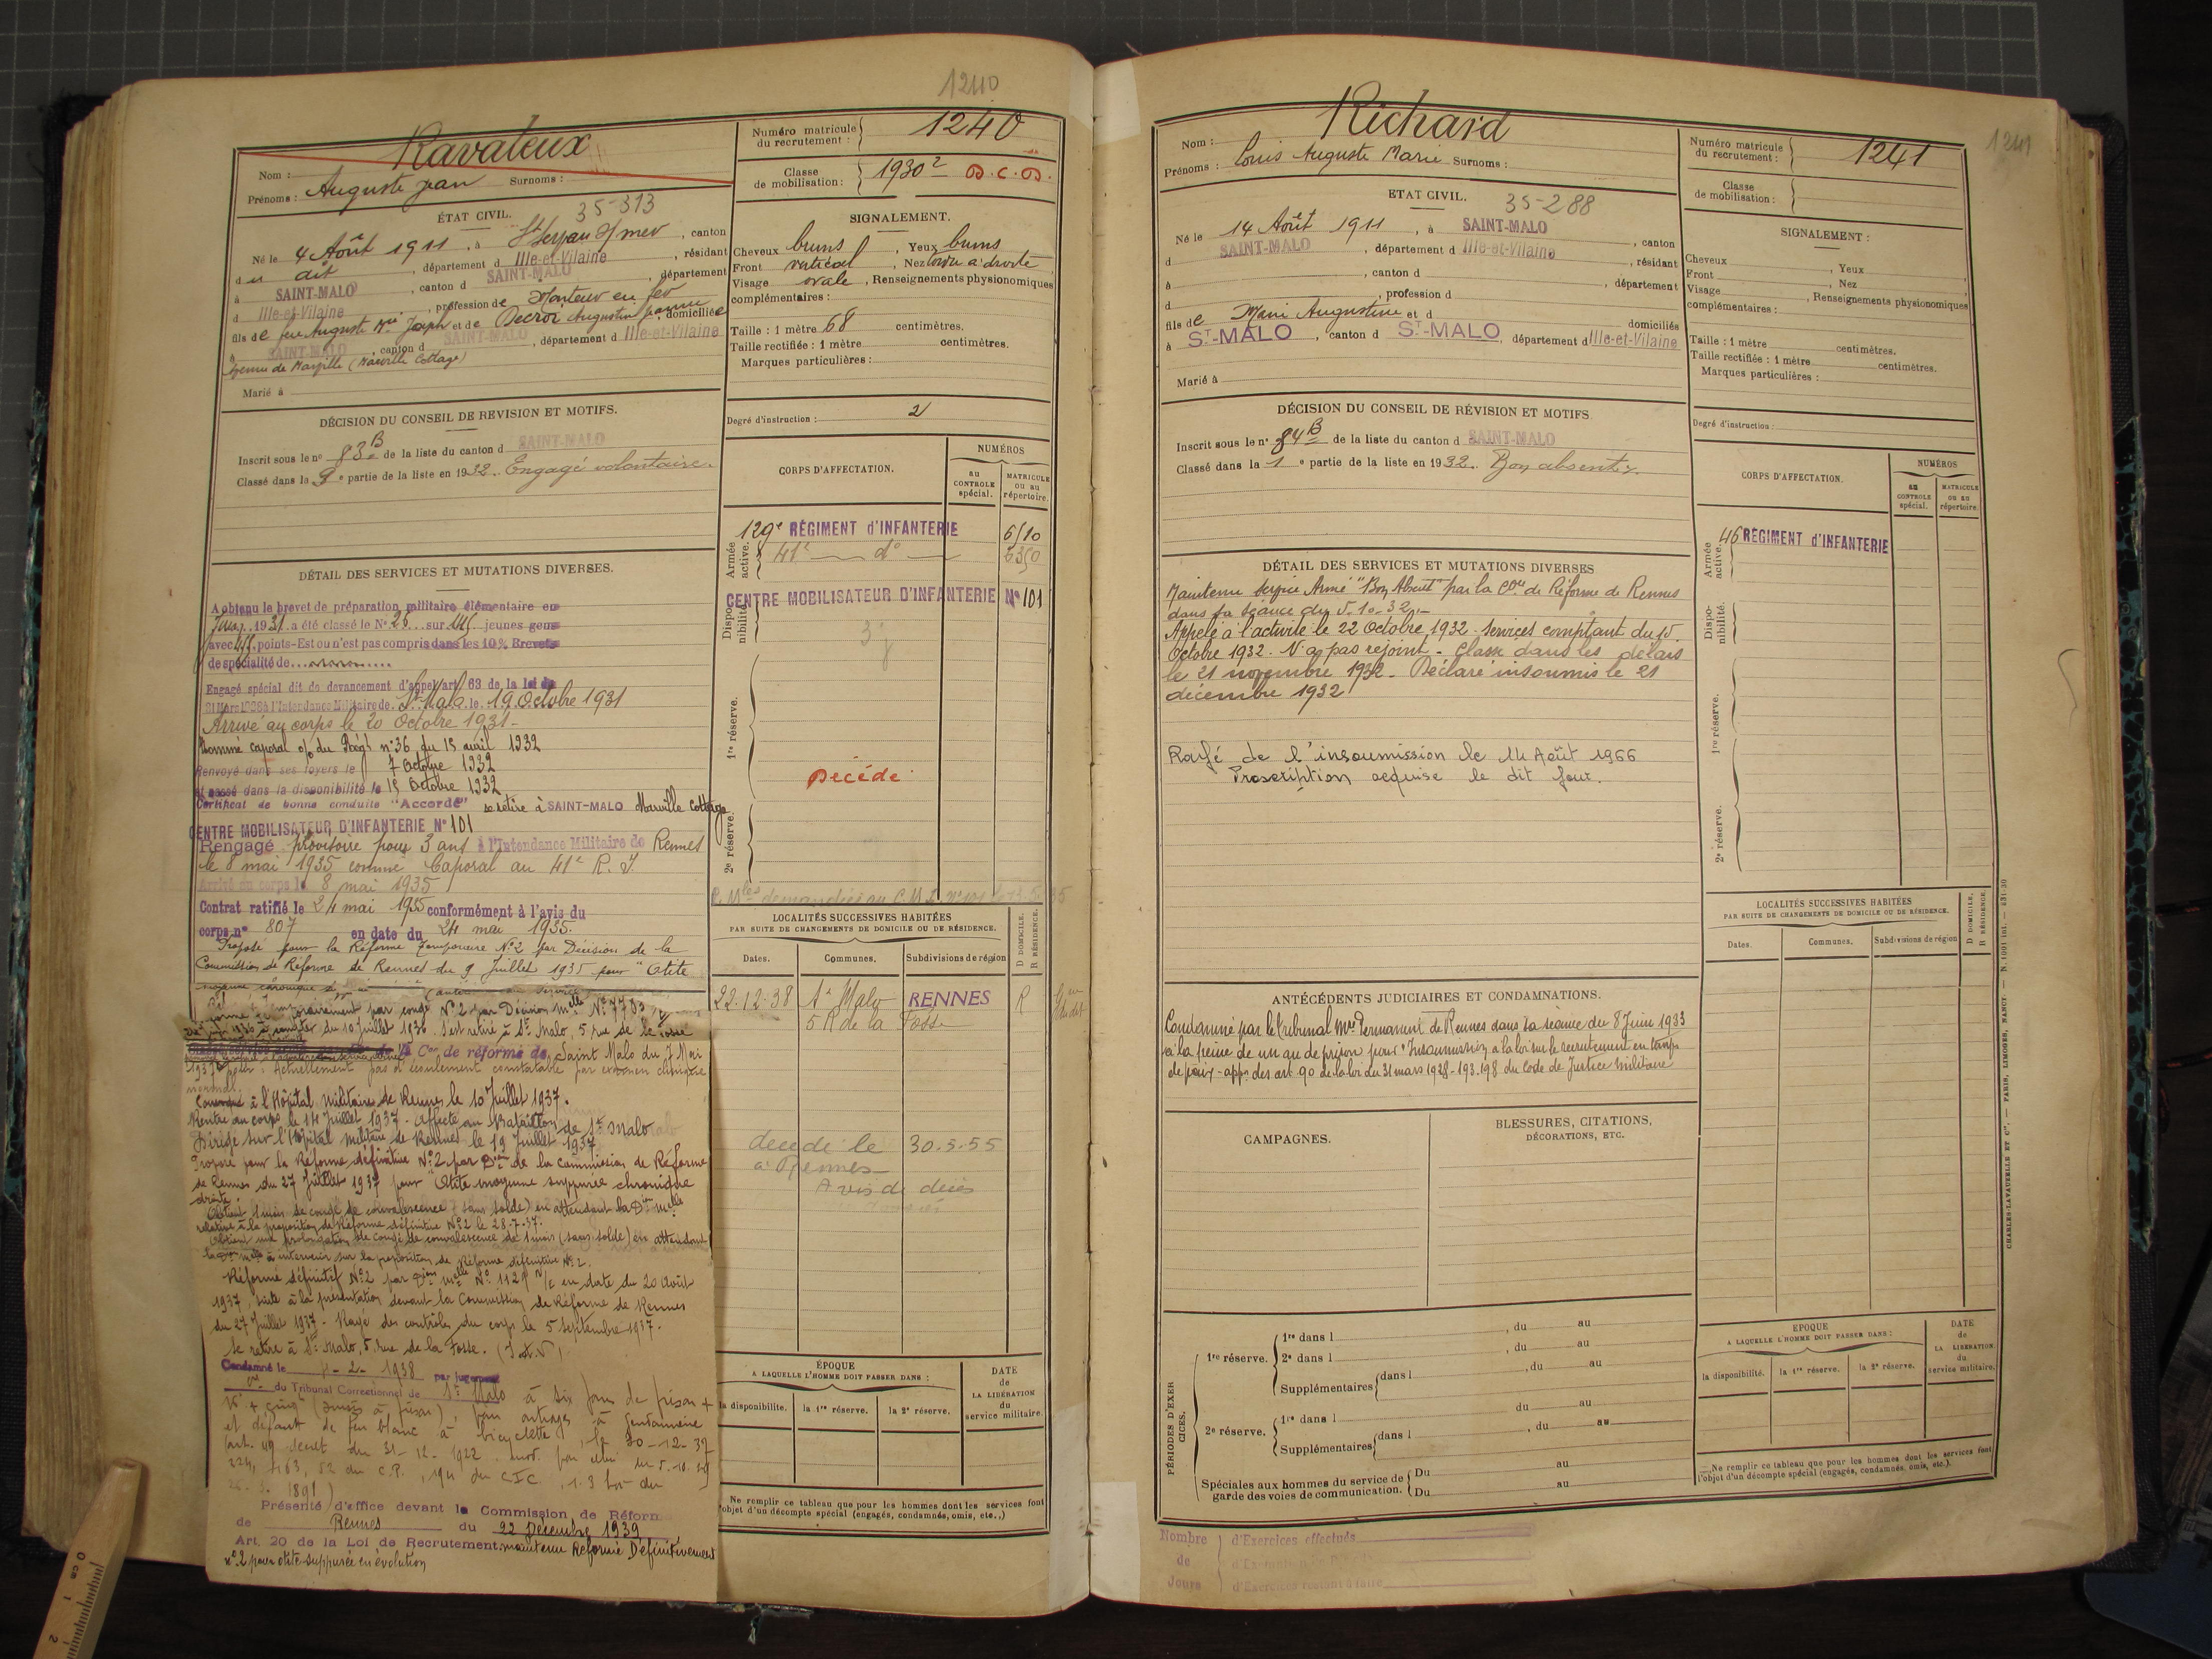 1240
Ravaleux
Nom :
Prénoms : Auguste Jean Surnoms :
Numéro matricule du recrutement : 1240
Classe de mobilisation : 1930² D.C.D.
ÉTAT CIVIL. 35-313
Né le 4 Août 1911, à St Servan s/mer, canton
d u dit, département d Ille-et-Vilaine, résidant
à SAINT-MALO, canton d SAINT-MALO, département
d Ille-et-Vilaine, profession de Monteur en fer
fils de feu Auguste Joseph et de Augustine domiciliée
à SAINT-MALO, canton d SAINT-MALO, département d Ille-et-Vilaine
Avenue de Marville (Marville Cottage)
Marié à
SIGNALEMENT.
Cheveux bruns, Yeux bruns
Front vertical, Nez tordu à droite
Visage ovale, Renseignements physionomiques
complémentaires :
Taille : 1 mètre 68 centimètres.
Taille rectifiée : 1 mètre centimètres.
Marques particulières :
Degré d'instruction : 2
DÉCISION DU CONSEIL DE REVISION ET MOTIFS.
Inscrit sous le nº 83 B de la liste du canton d SAINT-MALO
Classé dans la 3e partie de la liste en 1932. Engagé volontaire.
DÉTAIL DES SERVICES ET MUTATIONS DIVERSES.
A obtenu le brevet de préparation militaire élémentaire en
1931 a été classé le Nº 26 sur jeunes gens
avec points-Est ou n'est pas compris dans les 10% Brevets
de spécialité de
Engagé spécial dit de devancement d'appel art 63 de la loi du
31 Mars 1928 à l'Intendance Militaire de St Malo le 19 Octobre 1931
Arrivé au corps le 20 Octobre 1931-
Nommé caporal o/ du Régt nº 36 du 15 avril 1932
Renvoyé dans ses foyers le 7 Octobre 1932
et passé dans la disponibilité le 15 Octobre 1932
Certificat de bonne conduite "Accordé" se retire à SAINT-MALO Marville Cottage
CENTRE MOBILISATEUR D'INFANTERIE Nº 101
Rengagé provisoire pour 3 ans à l'Intendance Militaire de Rennes
le 8 mai 1935 comme Caporal au 41e R. I.
Arrivé au corps le 8 mai 1935
Contrat ratifié le 24 mai 1935 conformément à l'avis du
corps nº 807 en date du 24 mai 1935.
Proposé pour la Réforme Temporaire Nº2 par Décision de la
Commission de Réforme de Rennes du 9 Juillet 1935 pour "Otite
moyenne chronique
Réformé temporairement par congé Nº 2 par Décision Melle Nº 7783
à compter du 10 Juillet 1936. S'est retiré à St Malo, 5 rue de la Fosse
Con de réforme de Saint Malo du 7 Mai
1937 pour : Actuellement pas d'écoulement constatable par examen clinique
normal.
Convoqué à l'Hôpital Militaire de Rennes le 10 Juillet 1937.
Rentré au corps le 14 Juillet 1937 - Affecté au Bataillon de St Malo
Dirigé sur l'Hôpital Militaire de Rennes le 19 Juillet 1937
Proposé pour la Réforme définitive Nº2 par Don de la Commission de Réforme
de Rennes du 27 Juillet 1937 pour "Otite moyenne suppurée chronique
droite.
Obtient 1 mois de congé de convalescence (sans solde) en attendant la Don Melle
relative à la proposition de Réforme définitive Nº2 le 28-7-37.
Obtient une prolongation de congé de convalescence de 1 mois (sans solde) en attendant
la Don Melle à intervenir sur la proposition de Réforme définitive Nº 2.
Réformé définitif Nº2 par Don Melle Nº 11291 en date du 20 Août
1937, suite à la présentation devant la Commission de Réforme de Rennes
du 27 Juillet 1937 - Rayé des contrôles du corps le 5 Septembre 1937.
Se retire à St Malo, 5, rue de la Fosse.
Condamné le 2- 1938 par jugement
du Tribunal Correctionnel de St Malo à six jours de prison +
16f + cinq pour outrages à gendarmerie
et défaut de feu blanc à bicyclette, le 30-12-37
art. 49 décret du 31-12-1922
224, 463, 52 du C.P., 194 du CIC, 1.3 loi du
1891)
Présenté d'office devant la Commission de Réforme
de Rennes du 22 Décembre 1939
Art. 20 de la Loi de Recrutement: maintenu Réformé Définitivement
nº 2 pour otite suppurée en évolution
CORPS D'AFFECTATION.
NUMÉROS
au CONTROLE spécial.
MATRICULE ou au répertoire.
Armée active.
129e RÉGIMENT d'INFANTERIE 6510
41e dº 6350
Disponibilité.
CENTRE MOBILISATEUR D'INFANTERIE Nº 101
1re réserve.
Décédé
2e réserve.
LOCALITÉS SUCCESSIVES HABITÉES
PAR SUITE DE CHANGEMENTS DE DOMICILE OU DE RÉSIDENCE.
Dates. Communes. Subdivisions de région D DOMICILE. R RÉSIDENCE.
22-12-38 St Malo RENNES R
5 R de la Fosse
décédé le 30-3-55
à Rennes
Avis de décès
ÉPOQUE
A LAQUELLE L'HOMME DOIT PASSER DANS :
la disponibilité. la 1re réserve. la 2e réserve.
DATE de LA LIBÉRATION du service militaire.
Ne remplir ce tableau que pour les hommes dont les services font
l'objet d'un décompte spécial (engagés, condamnés, omis, etc.,)
1241
Richard
Nom :
Prénoms : Louis Auguste Marie Surnoms :
Numéro matricule du recrutement : 1241
Classe de mobilisation :
ETAT CIVIL. 35-288
Né le 14 Août 1911, à SAINT-MALO, canton
d SAINT-MALO, département d Ille-et-Vilaine, résidant
à, canton d, département
d, profession d
fils de Marie Augustine et d domiciliés
à ST-MALO, canton d ST-MALO, département d Ille-et-Vilaine
Marié à
SIGNALEMENT :
Cheveux, Yeux
Front, Nez
Visage, Renseignements physionomiques
complémentaires :
Taille : 1 mètre centimètres.
Taille rectifiée : 1 mètre centimètres.
Marques particulières :
Degré d'instruction :
DÉCISION DU CONSEIL DE RÉVISION ET MOTIFS
Inscrit sous le nº 84 B de la liste du canton d SAINT-MALO
Classé dans la 1e partie de la liste en 1932. Bon absent.
DÉTAIL DES SERVICES ET MUTATIONS DIVERSES
Maintenu Service Armé "Bon Absent" par la Con de Réforme de Rennes
dans sa séance du 5-10-32.-
Appelé à l'activité le 22 Octobre 1932 - Services comptant du 15
Octobre 1932. N'a pas rejoint - Classé dans les délais
le 21 novembre 1932 - Déclaré insoumis le 21
décembre 1932
Rayé de l'insoumission le 14 Août 1966
Prescription acquise le dit jour.
ANTÉCÉDENTS JUDICIAIRES ET CONDAMNATIONS.
Condamné par le Tribunal Mre Permanent de Rennes dans sa séance du 8 Juin 1933
à la peine de un an de prison pour "Insoumission à la loi sur le recrutement en temps
de paix - appn des art. 90 de la loi du 31 mars 1928 - 193.198 du Code de Justice Militaire
CAMPAGNES.
BLESSURES, CITATIONS, DÉCORATIONS, ETC.
PÉRIODES D'EXERCICES.
1re réserve. 1re dans l, du au
2e dans l, du au
Supplémentaires dans l, du au
du au
2e réserve. 1re dans l, du au
Supplémentaires dans l
du au
Spéciales aux hommes du service de garde des voies de communication. Du au
Du au
CORPS D'AFFECTATION.
NUMÉROS
au CONTROLE spécial.
MATRICULE ou au répertoire.
Armée active.
46 RÉGIMENT d'INFANTERIE
Disponibilité.
1re réserve.
2e réserve.
LOCALITÉS SUCCESSIVES HABITÉES
PAR SUITE DE CHANGEMENTS DE DOMICILE OU DE RÉSIDENCE.
Dates. Communes. Subdivisions de région D DOMICILE. R RÉSIDENCE.
EPOQUE
A LAQUELLE L'HOMME DOIT PASSER DANS :
la disponibilité. la 1re réserve. la 2e réserve.
DATE de LA LIBÉRATION du service militaire.
Ne remplir ce tableau que pour les hommes dont les services font
l'objet d'un décompte spécial (engagés, condamnés, omis, etc.).
CHARLES-LAVAUZELLE ET Cie. — PARIS, LIMOGES, NANCY.
Nombre de Jours d'Exercices effectués
d'Exercices restant à faire
1241